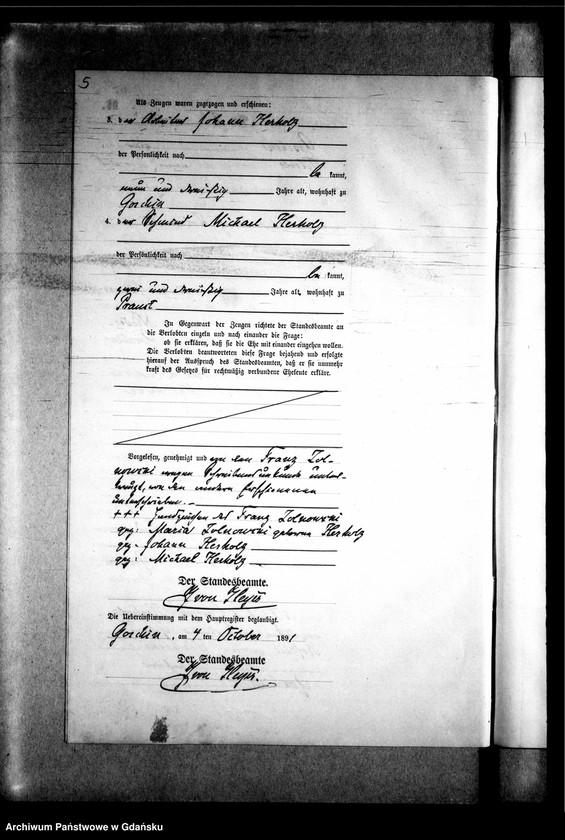 5
Als Zeugen waren zugezogen und erschienen:
3. der Arbeiter Johann Herholz
der Persönlichkeit nach
be kannt,
neun und dreißig Jahre alt, wohnhaft zu
4. der Schmied Michael Herholz
der Persönlichkeit nach
be kannt,
zwei und dreißig Jahre alt, wohnhaft zu
Praust
In Gegenwart der Zeugen richtete der Standesbeamte an
die Verlobten einzeln und nach einander die Frage:
ob sie erklären, daß sie die Ehe mit einander eingehen wollen.
Die Verlobten beantworteten diese Frage bejahend und erfolgte
hierauf der Ausspruch des Standesbeamten, daß er sie nunmehr
kraft des Gesetzes für rechtmäßig verbundene Eheleute erkläre.
Vorgelesen, genehmigt und von dem Franz Zol-
nowski wegen Schreibensunkunde unter-
kreuzt, von den andern Erschienenen
unterschrieben.
+++ Handzeichen des Franz Zolnowski
gez: Maria Zolnowski geborene Herholz
gez. Johann Herholz
gez: Michael Herholz
Der Standesbeamte.
von Heyer
Die Uebereinstimmung mit dem Hauptregister beglaubigt.
am 4 ten October 1891
Der Standesbeamte
von Heyer.
Archiwum Państwowe w Gdańsku